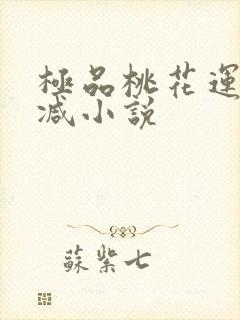 極品桃花運
减小説
蘇紫七